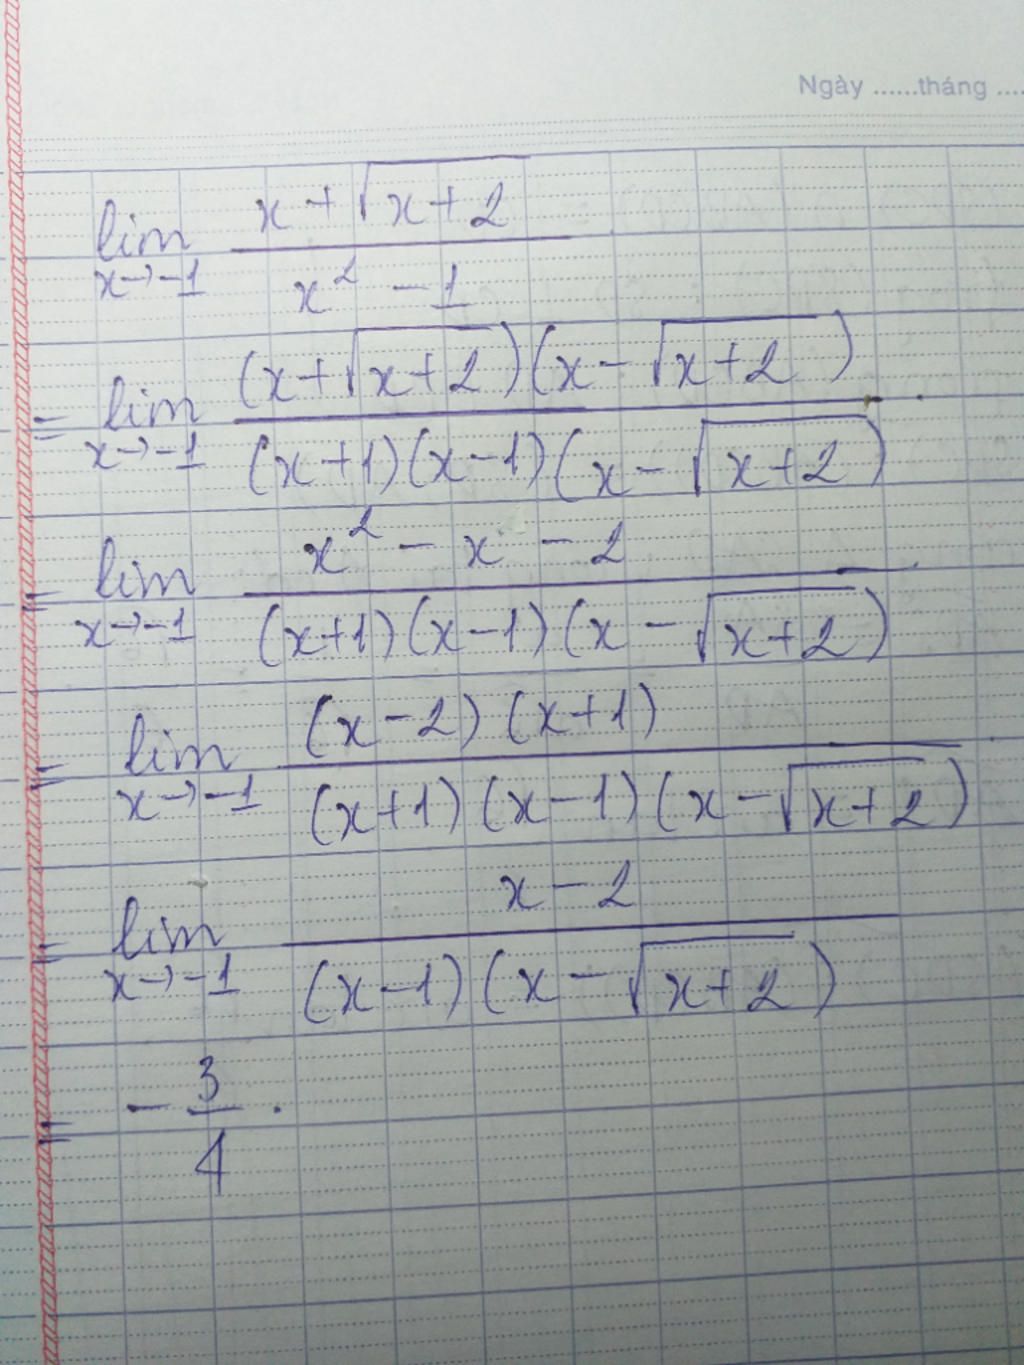 Ngày ......tháng ....
lim x→-1 (x+√(x+2))/(x² - 1)
= lim x→-1 ((x+√(x+2))(x-√(x+2)))/((x+1)(x-1)(x-√(x+2)))
= lim x→-1 (x² - x - 2)/((x+1)(x-1)(x-√(x+2)))
= lim x→-1 ((x-2)(x+1))/((x+1)(x-1)(x-√(x+2)))
= lim x→-1 (x-2)/((x-1)(x-√(x+2)))
= - 3/4 .